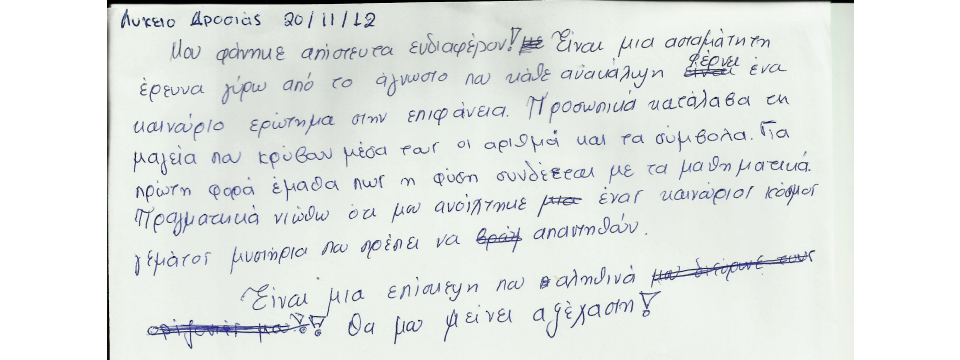 Λυκειο Δροσιάς 20/11/12
Μου φάνηκε απίστευτα ενδιαφέρον! με Είναι μια ασταμάτητη
έρευνα γύρω από το άγνωστο που κάθε ανακάλυψη είναι φέρνει ένα
καινούριο ερώτημα στην επιφάνεια. Προσωπικά κατάλαβα τη
μαγεία που κρύβουν μέσα τους οι αριθμοί και τα σύμβολα. Για
πρώτη φορά έμαθα πως η φύση συνδέεται με τα μαθηματικά.
Πραγματικά νιώθω ότι μου ανοίχτηκε μια ένας καινούριος κόσμος
γεμάτος μυστήρια που πρέπει να απαντηθούν.
Είναι μια επίσκεψη που αληθινά μου διεύρυνε τους
ορίζοντές μου!! θα μου μείνει αξέχαστη!